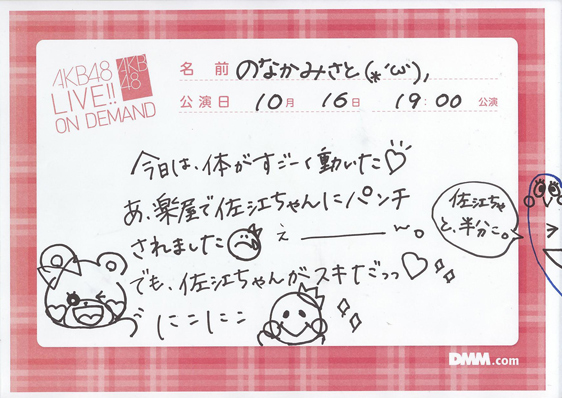 AKB48
LIVE!!
ON DEMAND
AKB
48
名前 のなかみさと(*´ω`),
公演日 10月 16日 19:00 公演
今日は、体がすごーく動いた♡
あ、楽屋で佐江ちゃんにパンチ
されました え ———〜。
でも、佐江ちゃんがスキだっっ♡
にこにこ
佐江ちゃ
と、半分こ。
DMM.com